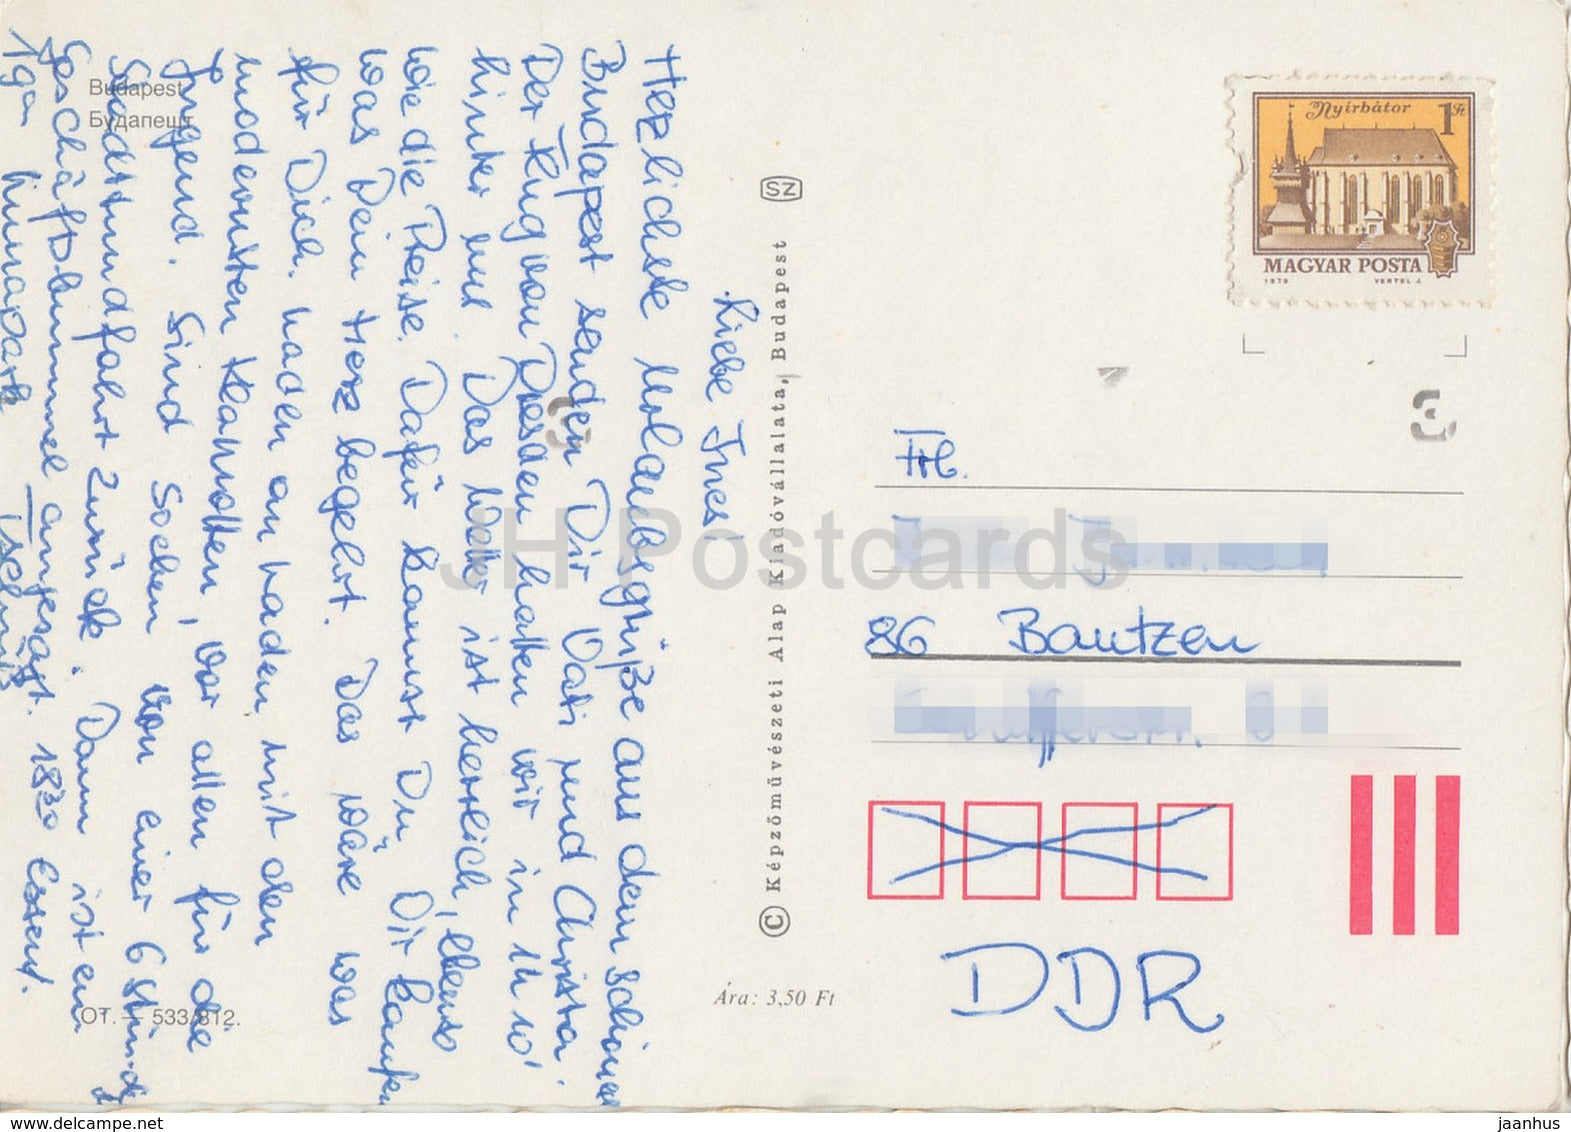 Budapest
Будапешт
Liebe Ines!
Herzlichste Urlaubsgrüße aus dem schönen
Budapest senden Dir Vati und Christa.
Der Flug von Dresden hatten wir in 1 h 10'
hinter uns. Das Wetter ist herrlich, ebenso
wie die Preise. Dafür kannst Du Dir kaufen
was Dein Herz begehrt. Das wäre was
für Dich. Laden an Laden, mit den
modernsten Klamotten, vor allen für die
Jugend. Sind soeben von einer 6 stündg
Stadtrundfahrt zurück. Dann ist ein
Geschäftsbummel angesagt. 18³⁰ Essen.
Tschüß
SZ
© Képzőművészeti Alap Kiadóvállalata, Budapest
Ára: 3,50 Ft
OT. — 533/812.
Nyírbátor
1 Ft
MAGYAR POSTA
1979 VERTEL J.
Frl.
86 Bautzen
DDR
JH Postcards
www.delcampe.net
jaanhus